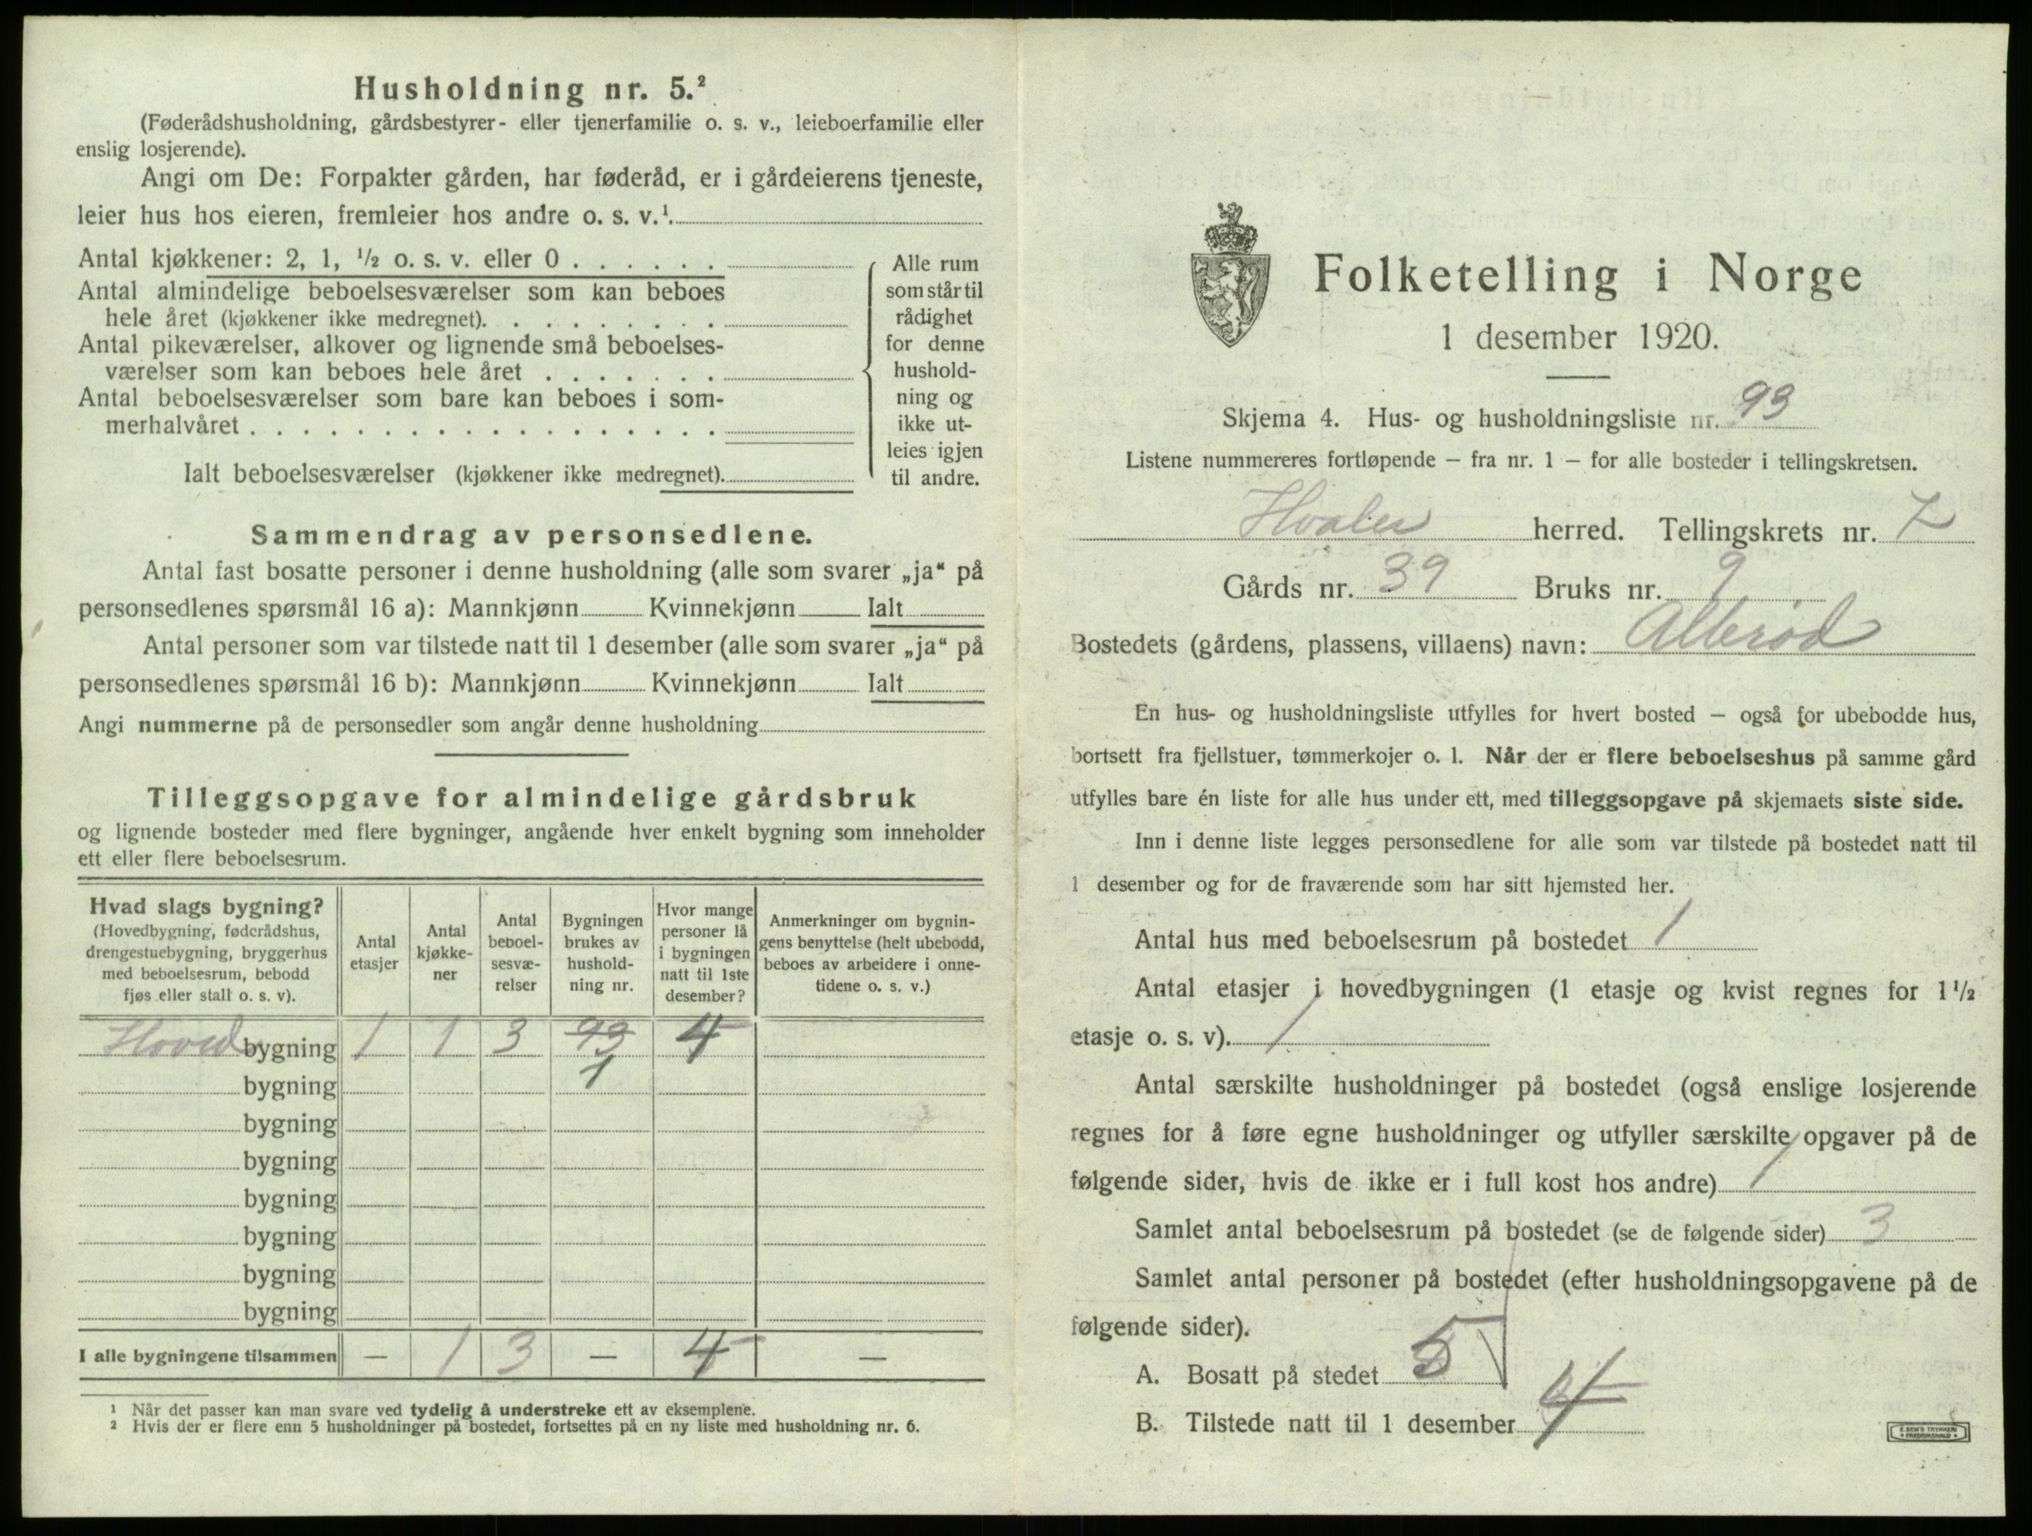 Husholdning nr. 5.²
(Føderådshusholdning, gårdsbestyrer- eller tjenerfamilie o. s. v., leieboerfamilie eller
enslig losjerende).
Angi om De: Forpakter gården, har føderåd, er i gårdeierens tjeneste,
leier hus hos eieren, fremleier hos andre o. s. v.¹.
Antal kjøkkener: 2, 1, ½ o. s. v. eller 0 . . . . . .
Antal almindelige beboelsesværelser som kan beboes
hele året (kjøkkener ikke medregnet). . . . . . . . .
Antal pikeværelser, alkover og lignende små beboelses-
værelser som kan beboes hele året . . . . . . .
Antal beboelsesværelser som bare kan beboes i som-
merhalvåret . . . . . . . . . . . . . . . . . .
Ialt beboelsesværelser (kjøkkener ikke medregnet).
Alle rum
som står til
rådighet
for denne
hushold-
ning og
ikke ut-
leies igjen
til andre.
Sammendrag av personsedlene.
Antal fast bosatte personer i denne husholdning (alle som svarer „ja“ på
personsedlenes spørsmål 16 a): Mannkjønn Kvinnekjønn Ialt
Antal personer som var tilstede natt til 1 desember (alle som svarer „ja“ på
personsedlenes spørsmål 16 b): Mannkjønn Kvinnekjønn Ialt
Angi nummerne på de personsedler som angår denne husholdning
Tilleggsopgave for almindelige gårdsbruk
og lignende bosteder med flere bygninger, angående hver enkelt bygning som inneholder
ett eller flere beboelsesrum.
Hvad slags bygning?
(Hovedbygning, føderådshus,
drengestuebygning, bryggerhus
med beboelsesrum, bebodd
fjøs eller stall o. s. v).
Antal
etasjer
Antal
kjøkke-
ner
Antal
beboel-
sesvæ-
relser
Bygningen
brukes av
hushold-
ning nr.
Hvor mange
personer lå
i bygningen
natt til 1ste
desember?
Anmerkninger om bygnin-
gens benyttelse (helt ubebodd,
beboes av arbeidere i onne-
tidene o. s. v.)
Hoved bygning 1 1 3 93 4
bygning 1
bygning
bygning
bygning
bygning
bygning
bygning
I alle bygningene tilsammen — 1 3 — 4 —
¹ Når det passer kan man svare ved tydelig å understreke ett av eksemplene.
² Hvis der er flere enn 5 husholdninger på bostedet, fortsettes på en ny liste med husholdning nr. 6.
Folketelling i Norge
1 desember 1920.
Skjema 4. Hus- og husholdningsliste nr. 93
Listene nummereres fortløpende — fra nr. 1 — for alle bosteder i tellingskretsen.
Hvaler herred. Tellingskrets nr. 7
Gårds nr. 39 Bruks nr. 9
Bostedets (gårdens, plassens, villaens) navn: Alberød
En hus- og husholdningsliste utfylles for hvert bosted — også for ubebodde hus,
bortsett fra fjellstuer, tømmerkojer o. l. Når der er flere beboelseshus på samme gård
utfylles bare én liste for alle hus under ett, med tilleggsopgave på skjemaets siste side.
Inn i denne liste legges personsedlene for alle som var tilstede på bostedet natt til
1 desember og for de fraværende som har sitt hjemsted her.
Antal hus med beboelsesrum på bostedet 1
Antal etasjer i hovedbygningen (1 etasje og kvist regnes for 1½
etasje o. s. v). 1
Antal særskilte husholdninger på bostedet (også enslige losjerende
regnes for å føre egne husholdninger og utfyller særskilte opgaver på de
følgende sider, hvis de ikke er i full kost hos andre) 1
Samlet antal beboelsesrum på bostedet (se de følgende sider) 3
Samlet antal personer på bostedet (efter husholdningsopgavene på de
følgende sider).
A. Bosatt på stedet 5
B. Tilstede natt til 1 desember 4